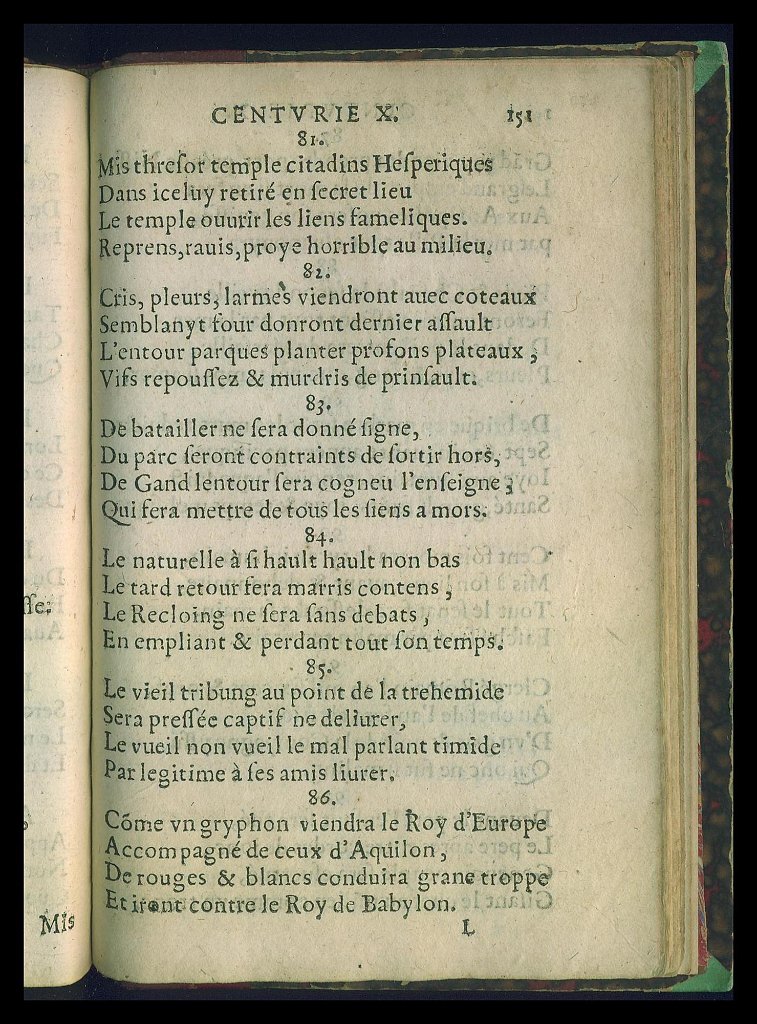 ſſe:
Mis
CENTVRIE X. 151
81.
Mis threſor temple citadins Heſperiques
Dans iceluy retiré en ſecret lieu
Le temple ouurir les liens fameliques.
Reprens, rauis, proye horrible au milieu.
82.
Cris, pleurs, larmes viendront auec coteaux
Semblanyt four donront dernier aſſault
L'entour parques planter profons plateaux,
Vifs repouſſez & murdris de prinſault.
83.
De batailler ne ſera donné ſigne,
Du parc ſeront contraints de ſortir hors,
De Gand lentour ſera cogneu l'enſeigne,
Qui fera mettre de tous les ſiens a mors.
84.
Le naturelle à ſi hault hault non bas
Le tard retour fera marris contens,
Le Recloing ne ſera ſans debats,
En empliant & perdant tout ſon temps.
85.
Le vieil tribung au point de la trehemide
Sera preſſée captif ne deliurer,
Le vueil non vueil le mal parlant timide
Par legitime à ſes amis liurer.
86.
Cõme vn gryphon viendra le Roy d'Europe
Accompagné de ceux d'Aquilon,
De rouges & blancs conduira grane troppe
Et iront contre le Roy de Babylon.
L